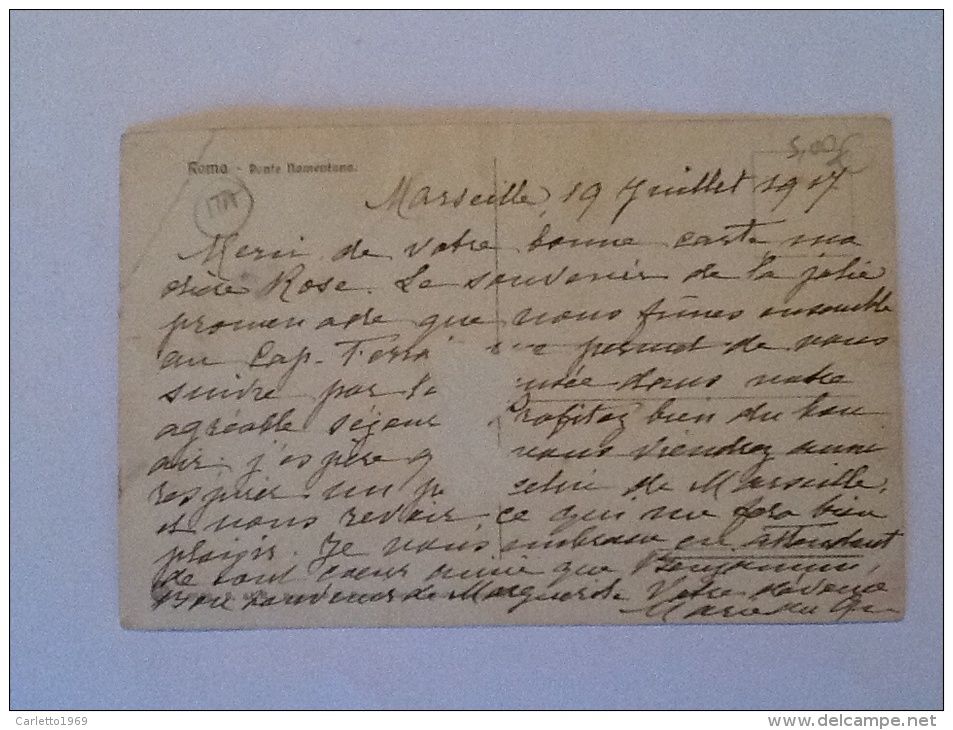 Roma - Ponte Nomentano.
5,00€
ITA
Marseille, 19 Juillet 1917
Merci de votre bonne carte ma
chère Rose. Le souvenir de la jolie
promenade que nous fîmes ensemble
au Cap-Ferra permet de vous
suivre par la nsée dans votre
agréable séjour rofitez bien du bon
air. j'espère q vous viendrez aussi
respirer un p celui de Marseille,
et nous revoir, ce qui me fera bien
plaisir. Je vous embrasse en attendant
de tout coeur ainsi que Benjamin,
Bon souvenir de Marguerite Votre dévouée